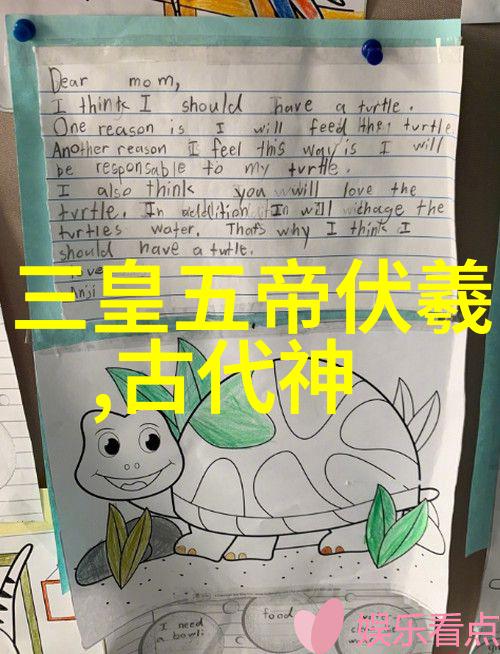 Dear mom,
I think I should have a turtle.
One reason is I will feed the turtle.
Another reason I feel this way is I will
be responsable to my turtle.
I also think you will love the
turtle. In addition will chage the
turtles water. That's why I think I
should have a turtle.
Anji
三皇五帝伏羲
,古代神
I need
a bowl
food
娱乐看点